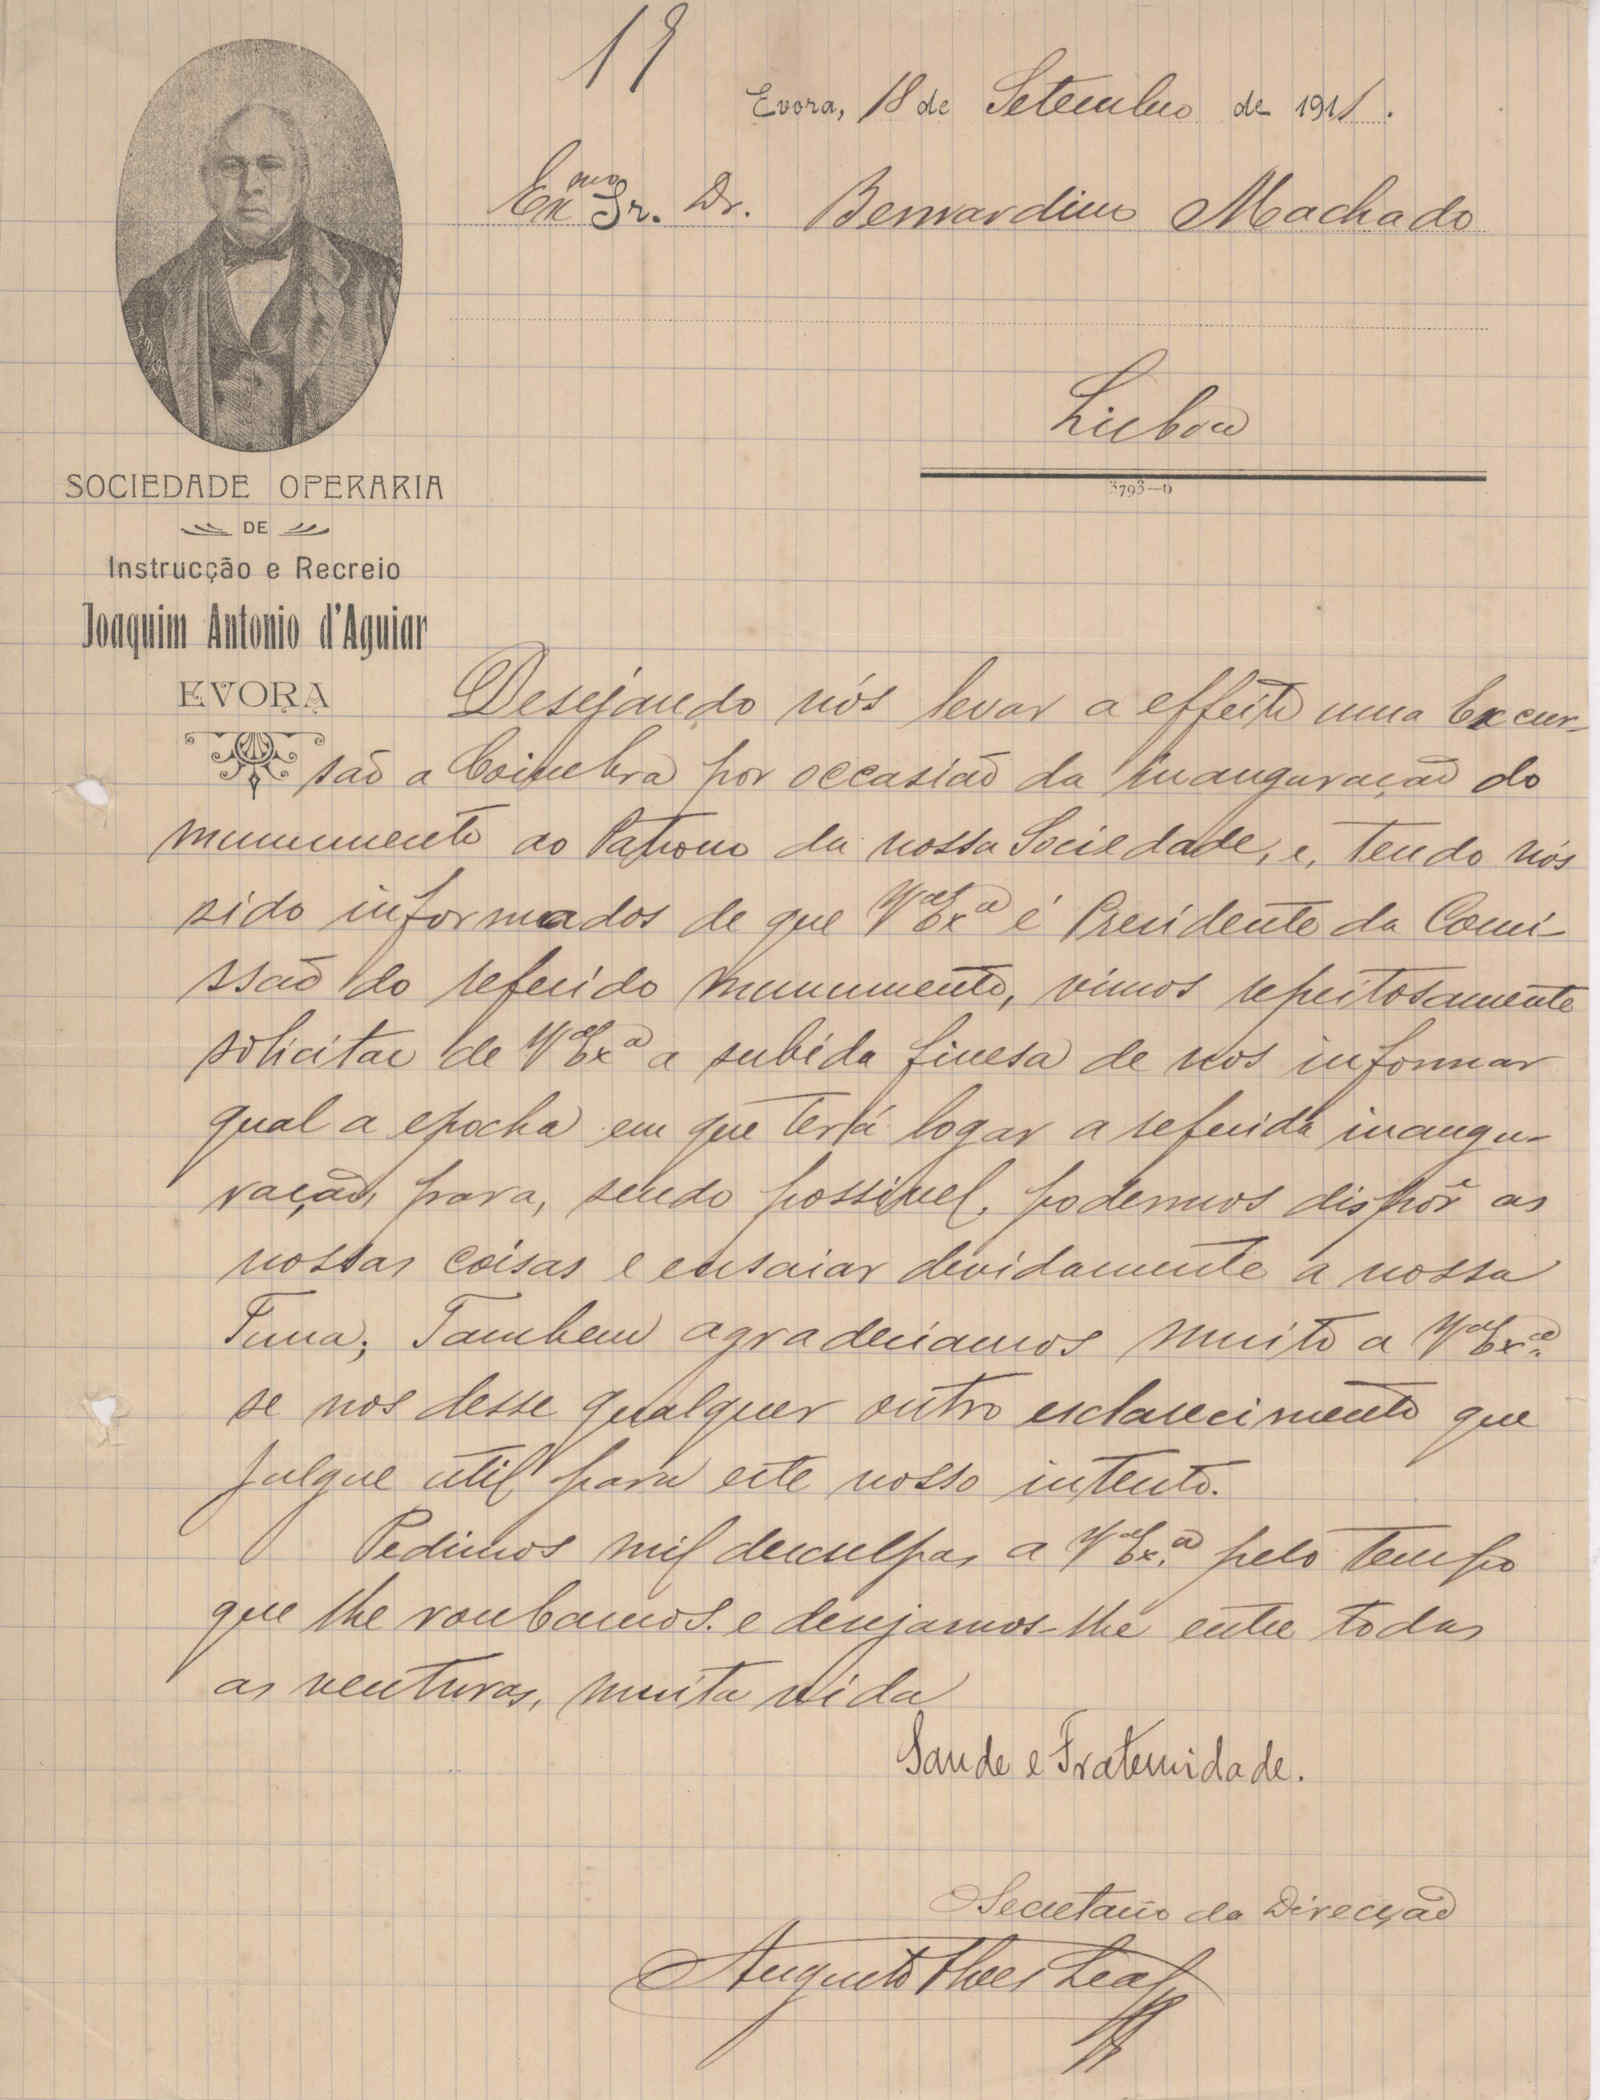 19
Evora, 18 de Setembro de 1911.
Exmo Sr. Dr. Bernardino Machado
Lisboa
3793-6
SOCIEDADE OPERARIA
DE
Instrucção e Recreio
Joaquim Antonio d'Aguiar
EVORA
Desejando nós levar a effeito uma Excur-
são a Coimbra por occasião da inauguração do
munumento ao Patrono da nossa Sociedade, e, tendo nós
sido informados de que V.Exa é Presidente da Comi-
ssão do referido munumento, vimos respeitosamente
solicitar de V.Exa a subida finesa de nos informar
qual a epocha em que terá logar a referida inaugu-
ração, para, sendo possivel, podermos dispôr as
nossas coisas e ensaiar devidamente a nossa
Tuna; Tambem agradeciamos muito a V.Exa.
se nos desse qualquer outro esclarecimento que
julgue util para este nosso intento.
Pedimos mil desculpas a V.Ex.a pelo tempo
que lhe roubamos. e desejamos-lhe entre todas
as venturas, muita vida
Saude e Fraternidade.
Secretario da Direcção
Augusto Leal